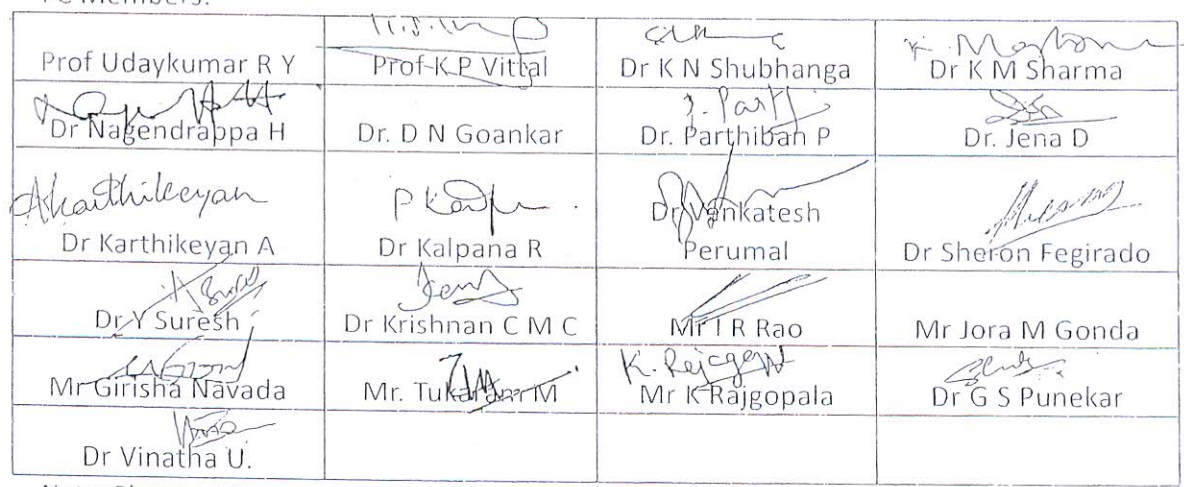 Prof Udaykumar R Y
Prof K P Vittal
Dr K N Shubhanga
Dr K M Sharma
Dr Nagendrappa H
Dr. D N Goankar
P. Parthi
Dr. Parthiban P
Dr. Jena D
AKarthikeyan
Dr Karthikeyan A
Dr Kalpana R
Dr Venkatesh
Perumal
Dr Sheron Fegirado
Dr Y Suresh
Dr Krishnan C M C
Mr I R Rao
Mr Jora M Gonda
Mr Girisha Navada
Mr. Tukaram M
K. Rajgopal
Mr K Rajgopala
Dr G S Punekar
Dr Vinatha U.